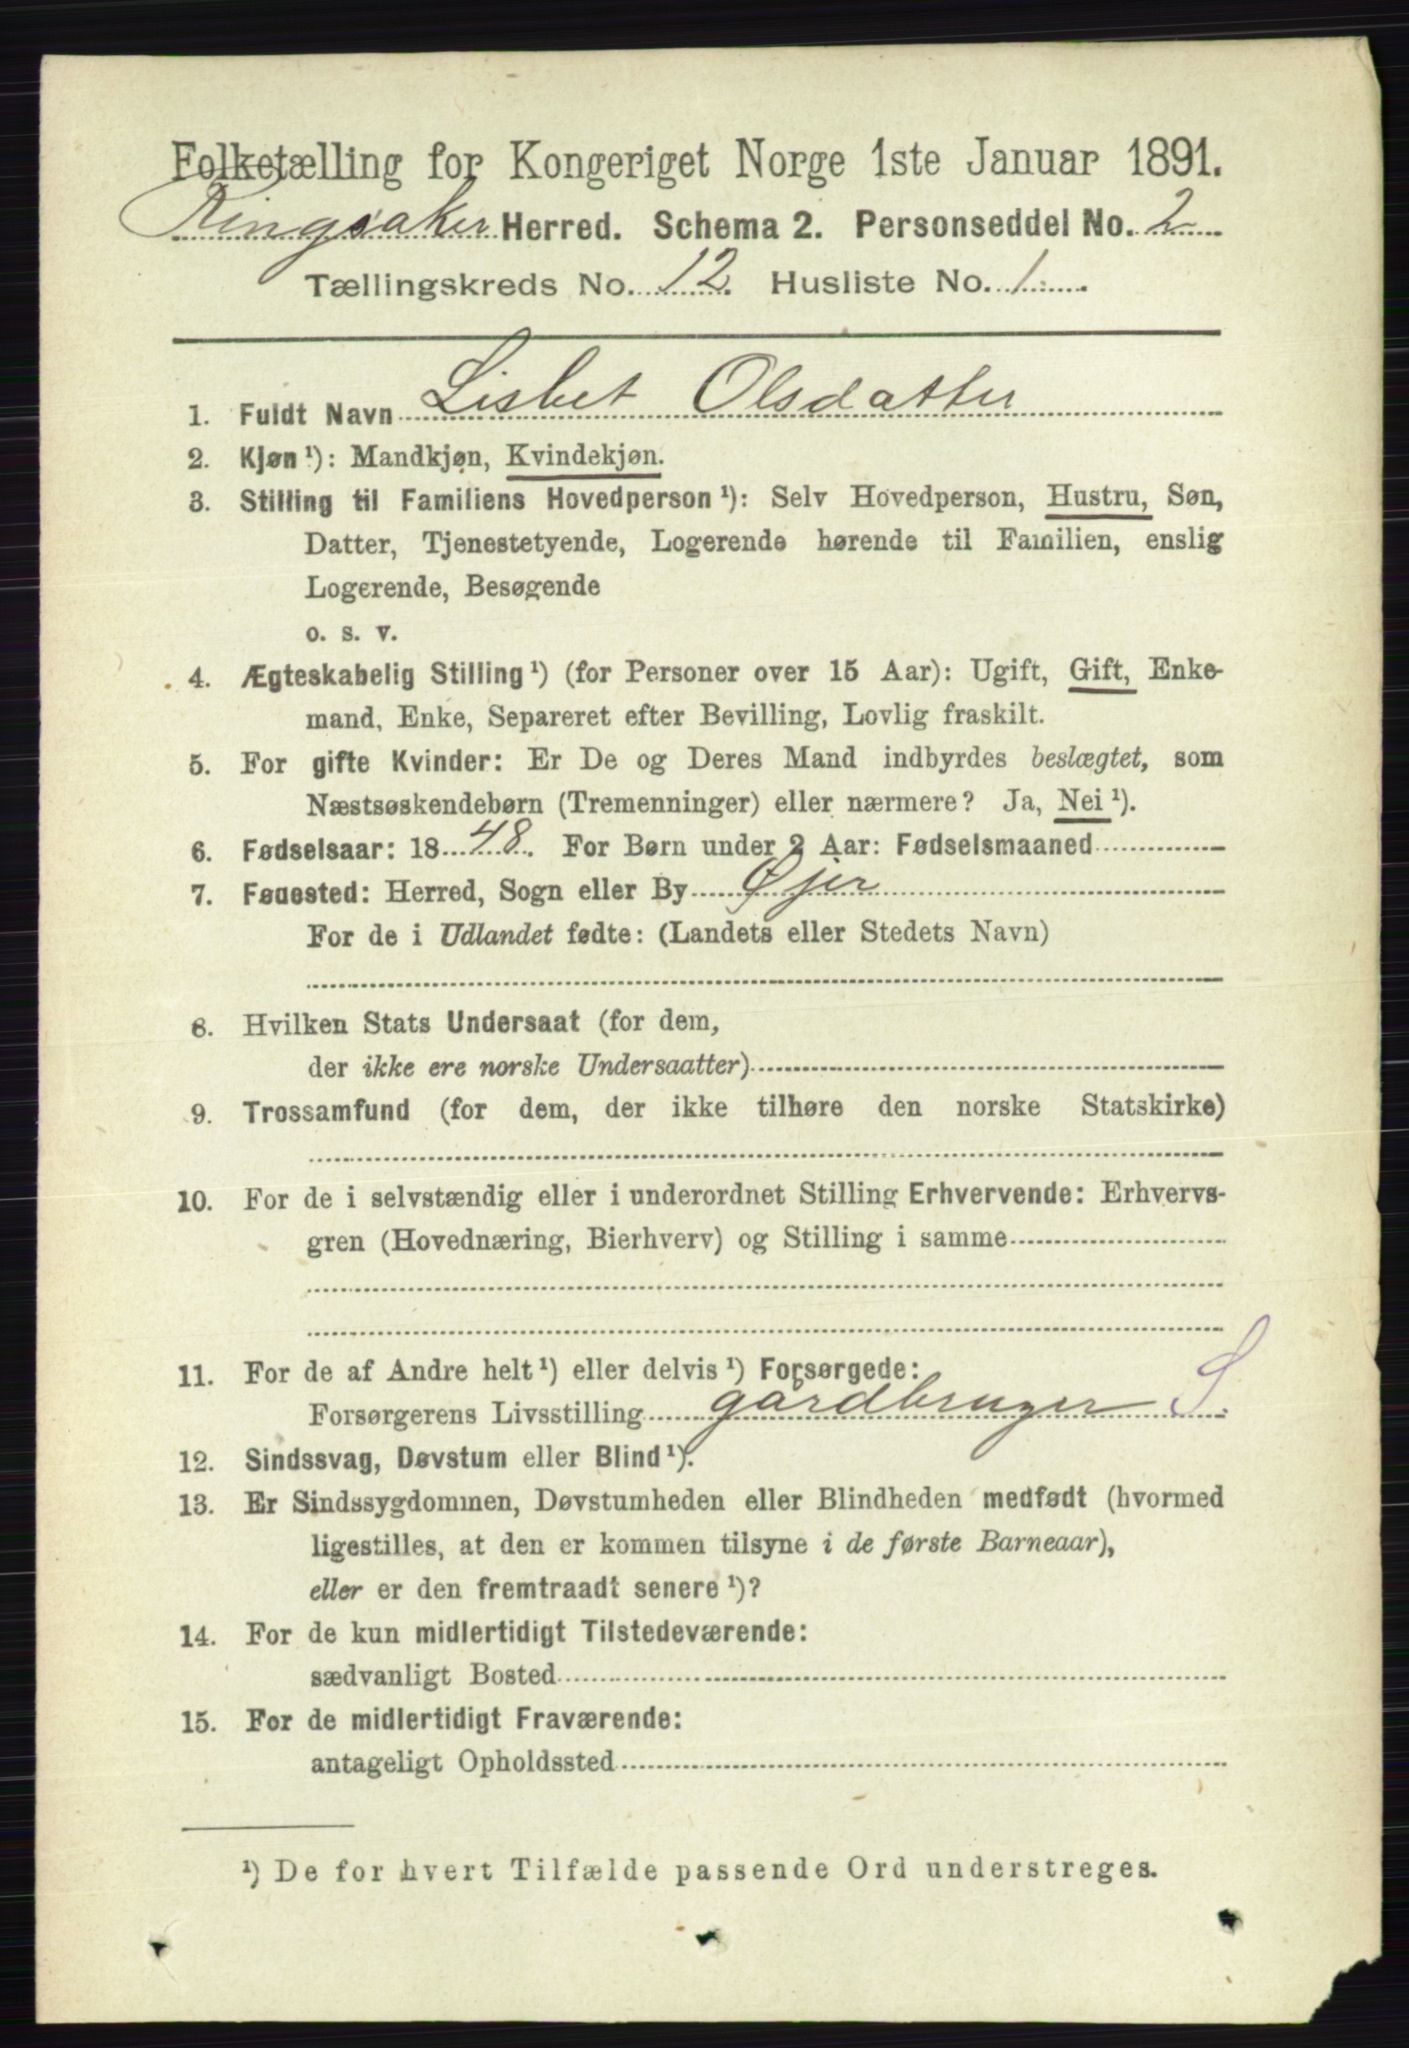 Folketælling for Kongeriget Norge 1ste Januar 1891.
Ringsaker Herred. Schema 2. Personseddel No. 2
Tællingskreds No. 12. Husliste No. 1.
1. Fuldt Navn Lisbet Olsdatter
2. Kjøn ¹): Mandkjøn, Kvindekjøn.
3. Stilling til Familiens Hovedperson ¹): Selv Hovedperson, Hustru, Søn,
Datter, Tjenestetyende, Logerende hørende til Familien, enslig
Logerende, Besøgende
o. s. v.
4. Ægteskabelig Stilling ¹) (for Personer over 15 Aar): Ugift, Gift, Enke-
mand, Enke, Separeret efter Bevilling, Lovlig fraskilt.
5. For gifte Kvinder: Er De og Deres Mand indbyrdes beslægtet, som
Næstsøskendebørn (Tremenninger) eller nærmere? Ja, Nei ¹).
6. Fødselsaar: 18 48. For Børn under 2 Aar: Fødselsmaaned
7. Fødested: Herred, Sogn eller By Øjer
For de i Udlandet fødte: (Landets eller Stedets Navn)
8. Hvilken Stats Undersaat (for dem,
der ikke ere norske Undersaatter)
9. Trossamfund (for dem, der ikke tilhøre den norske Statskirke)
10. For de i selvstændig eller i underordnet Stilling Erhvervende: Erhvervs-
gren (Hovednæring, Bierhverv) og Stilling i samme
11. For de af Andre helt ¹) eller delvis ¹) Forsørgede:
Forsørgerens Livsstilling gårdbruger S.
12. Sindssvag, Døvstum eller Blind ¹).
13. Er Sindssygdommen, Døvstumheden eller Blindheden medfødt (hvormed
ligestilles, at den er kommen tilsyne i de første Barneaar),
eller er den fremtraadt senere ¹)?
14. For de kun midlertidigt Tilstedeværende:
sædvanligt Bosted
15. For de midlertidigt Fraværende:
antageligt Opholdssted
¹) De for hvert Tilfælde passende Ord understreges.